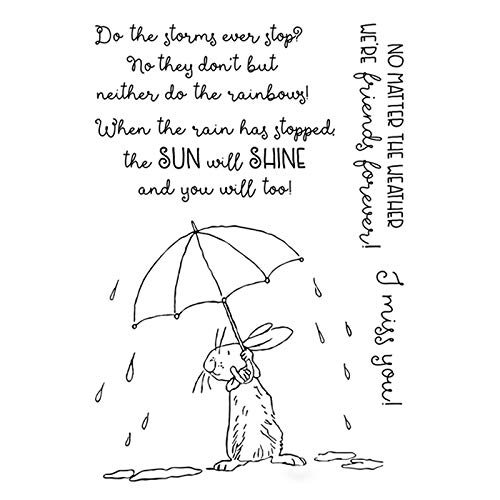 Do the storms ever stop?
No they don't but
neither do the rainbows!
When the rain has stopped,
the SUN will SHINE
and you will too!
NO MATTER THE WEATHER
WE'RE friends forever!
I miss you!